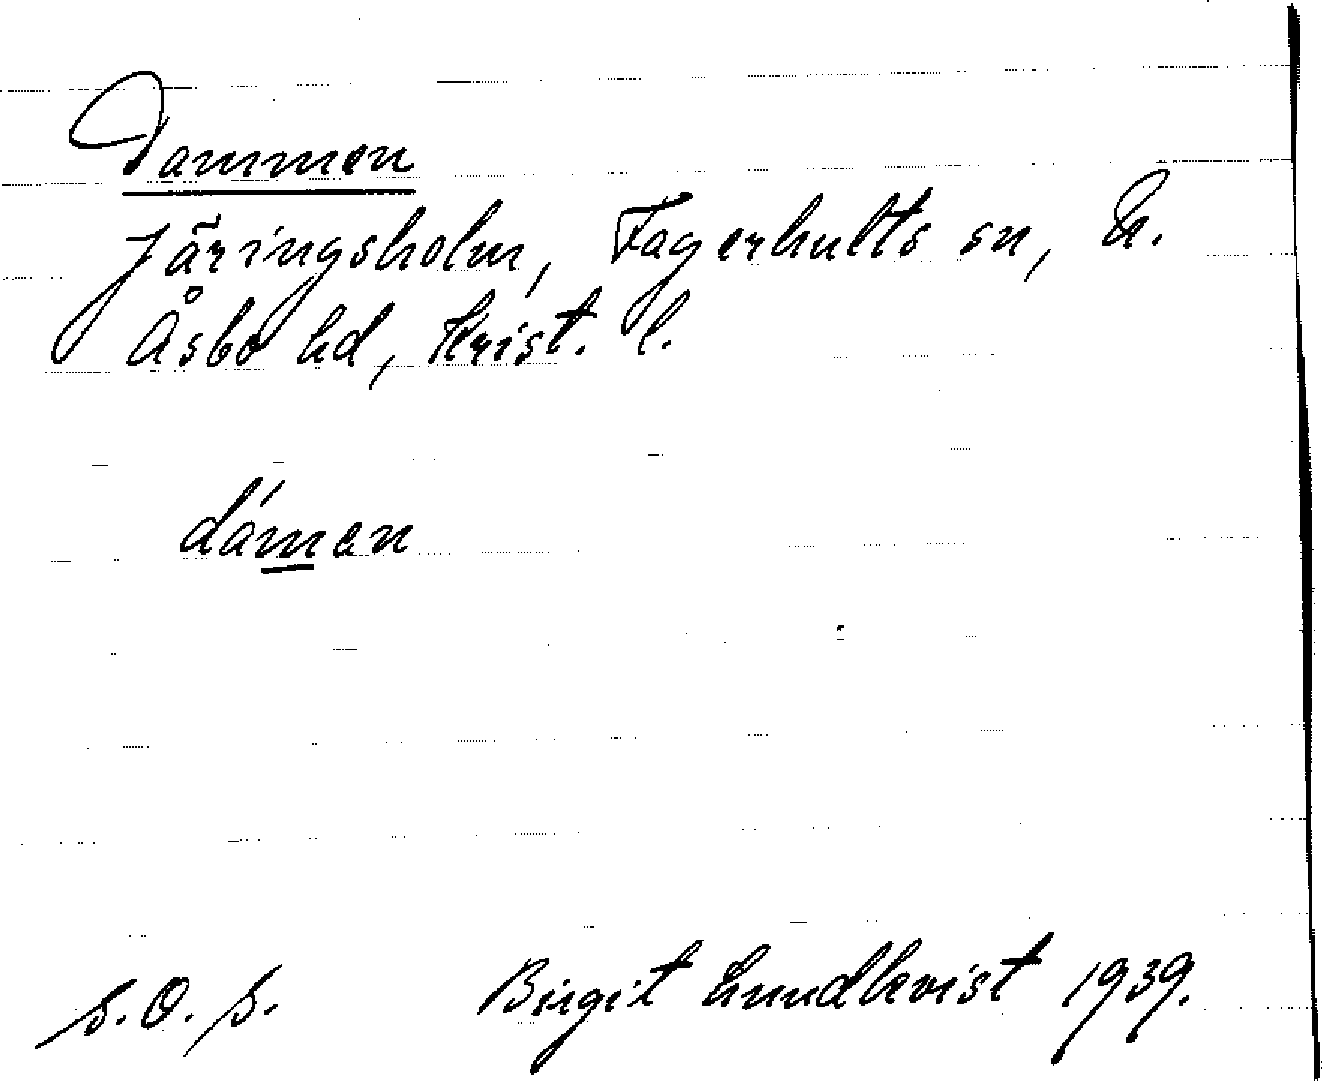 Dammen
Järingsholm, Fagerhults sn, N.
Åsbo hd, Krist. l.
dámen
S.O.S. Birgit Lundkvist 1939.